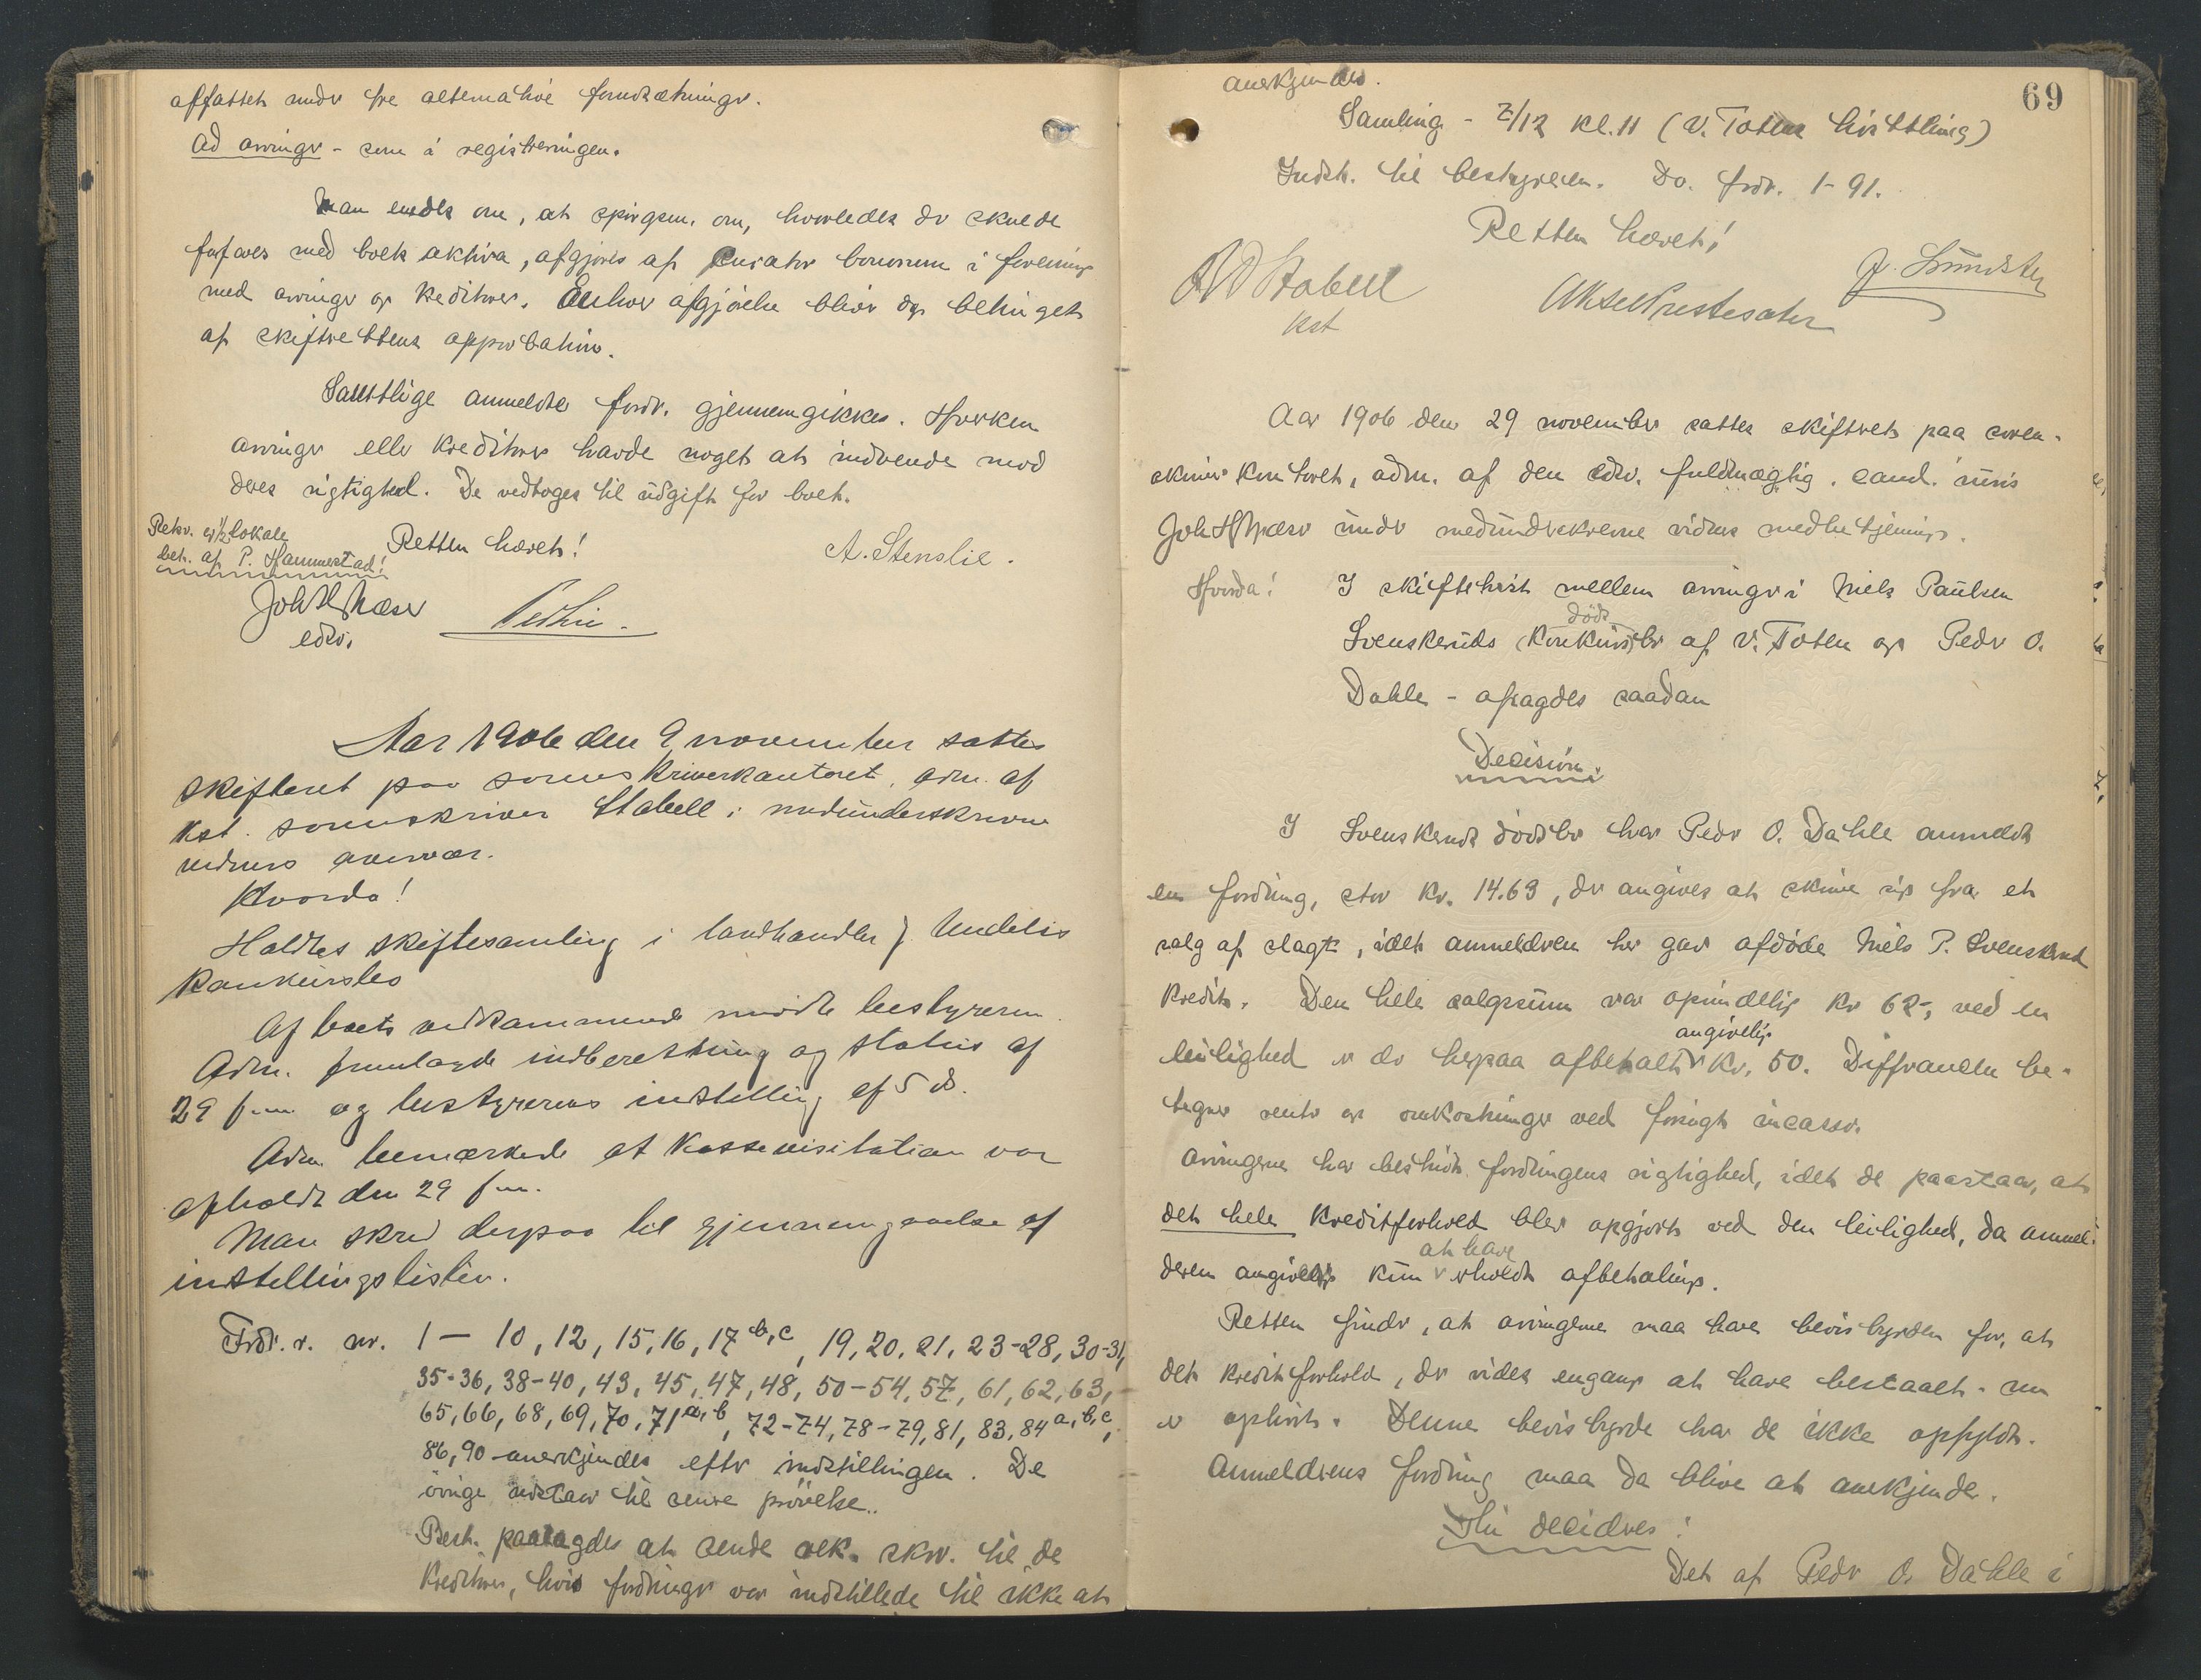 affattet under tre alternative forudsætninger.
Ad arvinger - som i registreringen.
Man enedes om, at spørgsm. om, hvorledes der skulde
forfares med boets aktiva, afgjøres af curator bonorum i forening
med arvinger og kreditorer. Enhver afgjørelse bliver dog betinget
af skifterettens approbation.
Samtlige anmeldte fordr. gjennemgikkes. Hverken
arvinger eller kreditorer havde noget at indvende mod
deres rigtighed. De vedtoges til udgift for boet.
Rekv. lokale
bet. af P. Hammerstad!
Retten hævet!
A. Stenslie.
Joh H
edsv.
Aar 1906 den 9 november sattes
skifteret paa sorenskriverkontoret, adm. af
kst. sorenskriver Stabell i medunderskrevne
vidners overvær.
Hvorda!
Holdtes skiftesamling i landhandler J.
konkursbo
Af boets vedkommende mødte bestyreren.
Adm. fremlagde indberetning og status af
29 f.m. og bestyrerens indstilling af 5 ds.
Adm. bemærkede at kassevisitation var
afholdt den 29 f.m.
Man skred derpaa til gjennemgaaelse af
indstillingslisten.
Fordr. nr. 1 - 10, 12, 15, 16, 17 b, c, 19, 20, 21, 23-28, 30-31,
35-36, 38-40, 43, 45, 47, 48, 50-54, 57, 61, 62, 63,
65, 66, 68, 69, 70, 71 a, b, 72-74, 78-79, 81, 83, 84 a, b, c,
86, 90 anerkjendes efter indstillingen. De
øvrige udstaar til senere prøvelse.
Best. paalagdes at sende rek. skr. til de
kreditorer, hvis fordringer var indstillede til ikke at
69
anerkjendes.
Samling - 7/12 kl. 11 (V. Toten
Indst. til bestyrelsen. Do. fordr. 1-91.
Retten hævet!
Stabell
kst
Aksel Prestesæter
Aar 1906 den 29 november sattes skifteret paa soren-
skriverkontoret, adm. af den edsv. fuldmægtig, cand. juris
Joh H under medunderskrevne vidners medbetjening.
Hvorda!
I skiftetvist mellem arvinger i Niels Paulsen
døds
Svenskeruds konkursbo af V. Toten og Peder O.
Dahle - afsagdes saadan
Decision:
I Svenskeruds dødsbo har Peder O. Dahle anmeldt
en fordring, stor kr. 14.63, der angives at skrive sig fra et
salg af slagt, idet anmelderen her gav afdøde Niels P. Svenskerud
kredit. Den hele salgssum var oprindelig kr 62-, ved en
angivelig
leilighed er der herpaa afbetalt kr. 50. Differancen be-
tegner renter og omkostninger ved forsøgt incasso.
Arvingerne har bestridt fordringens rigtighed, idet de paastaar, at
det hele kreditforhold blev opgjort ved den leilighed, da anmel-
at have
deren angivelig kun erholdt afbetaling.
Retten finder, at arvingerne maa have bevisbyrden for, at
det kreditforhold, der vides engang at have bestaaet, nu
er ophørt. Denne bevisbyrde har de ikke opfyldt.
Anmelderens fordring maa da blive at anerkjende.
Thi decideres:
Det af Peder O. Dahle i